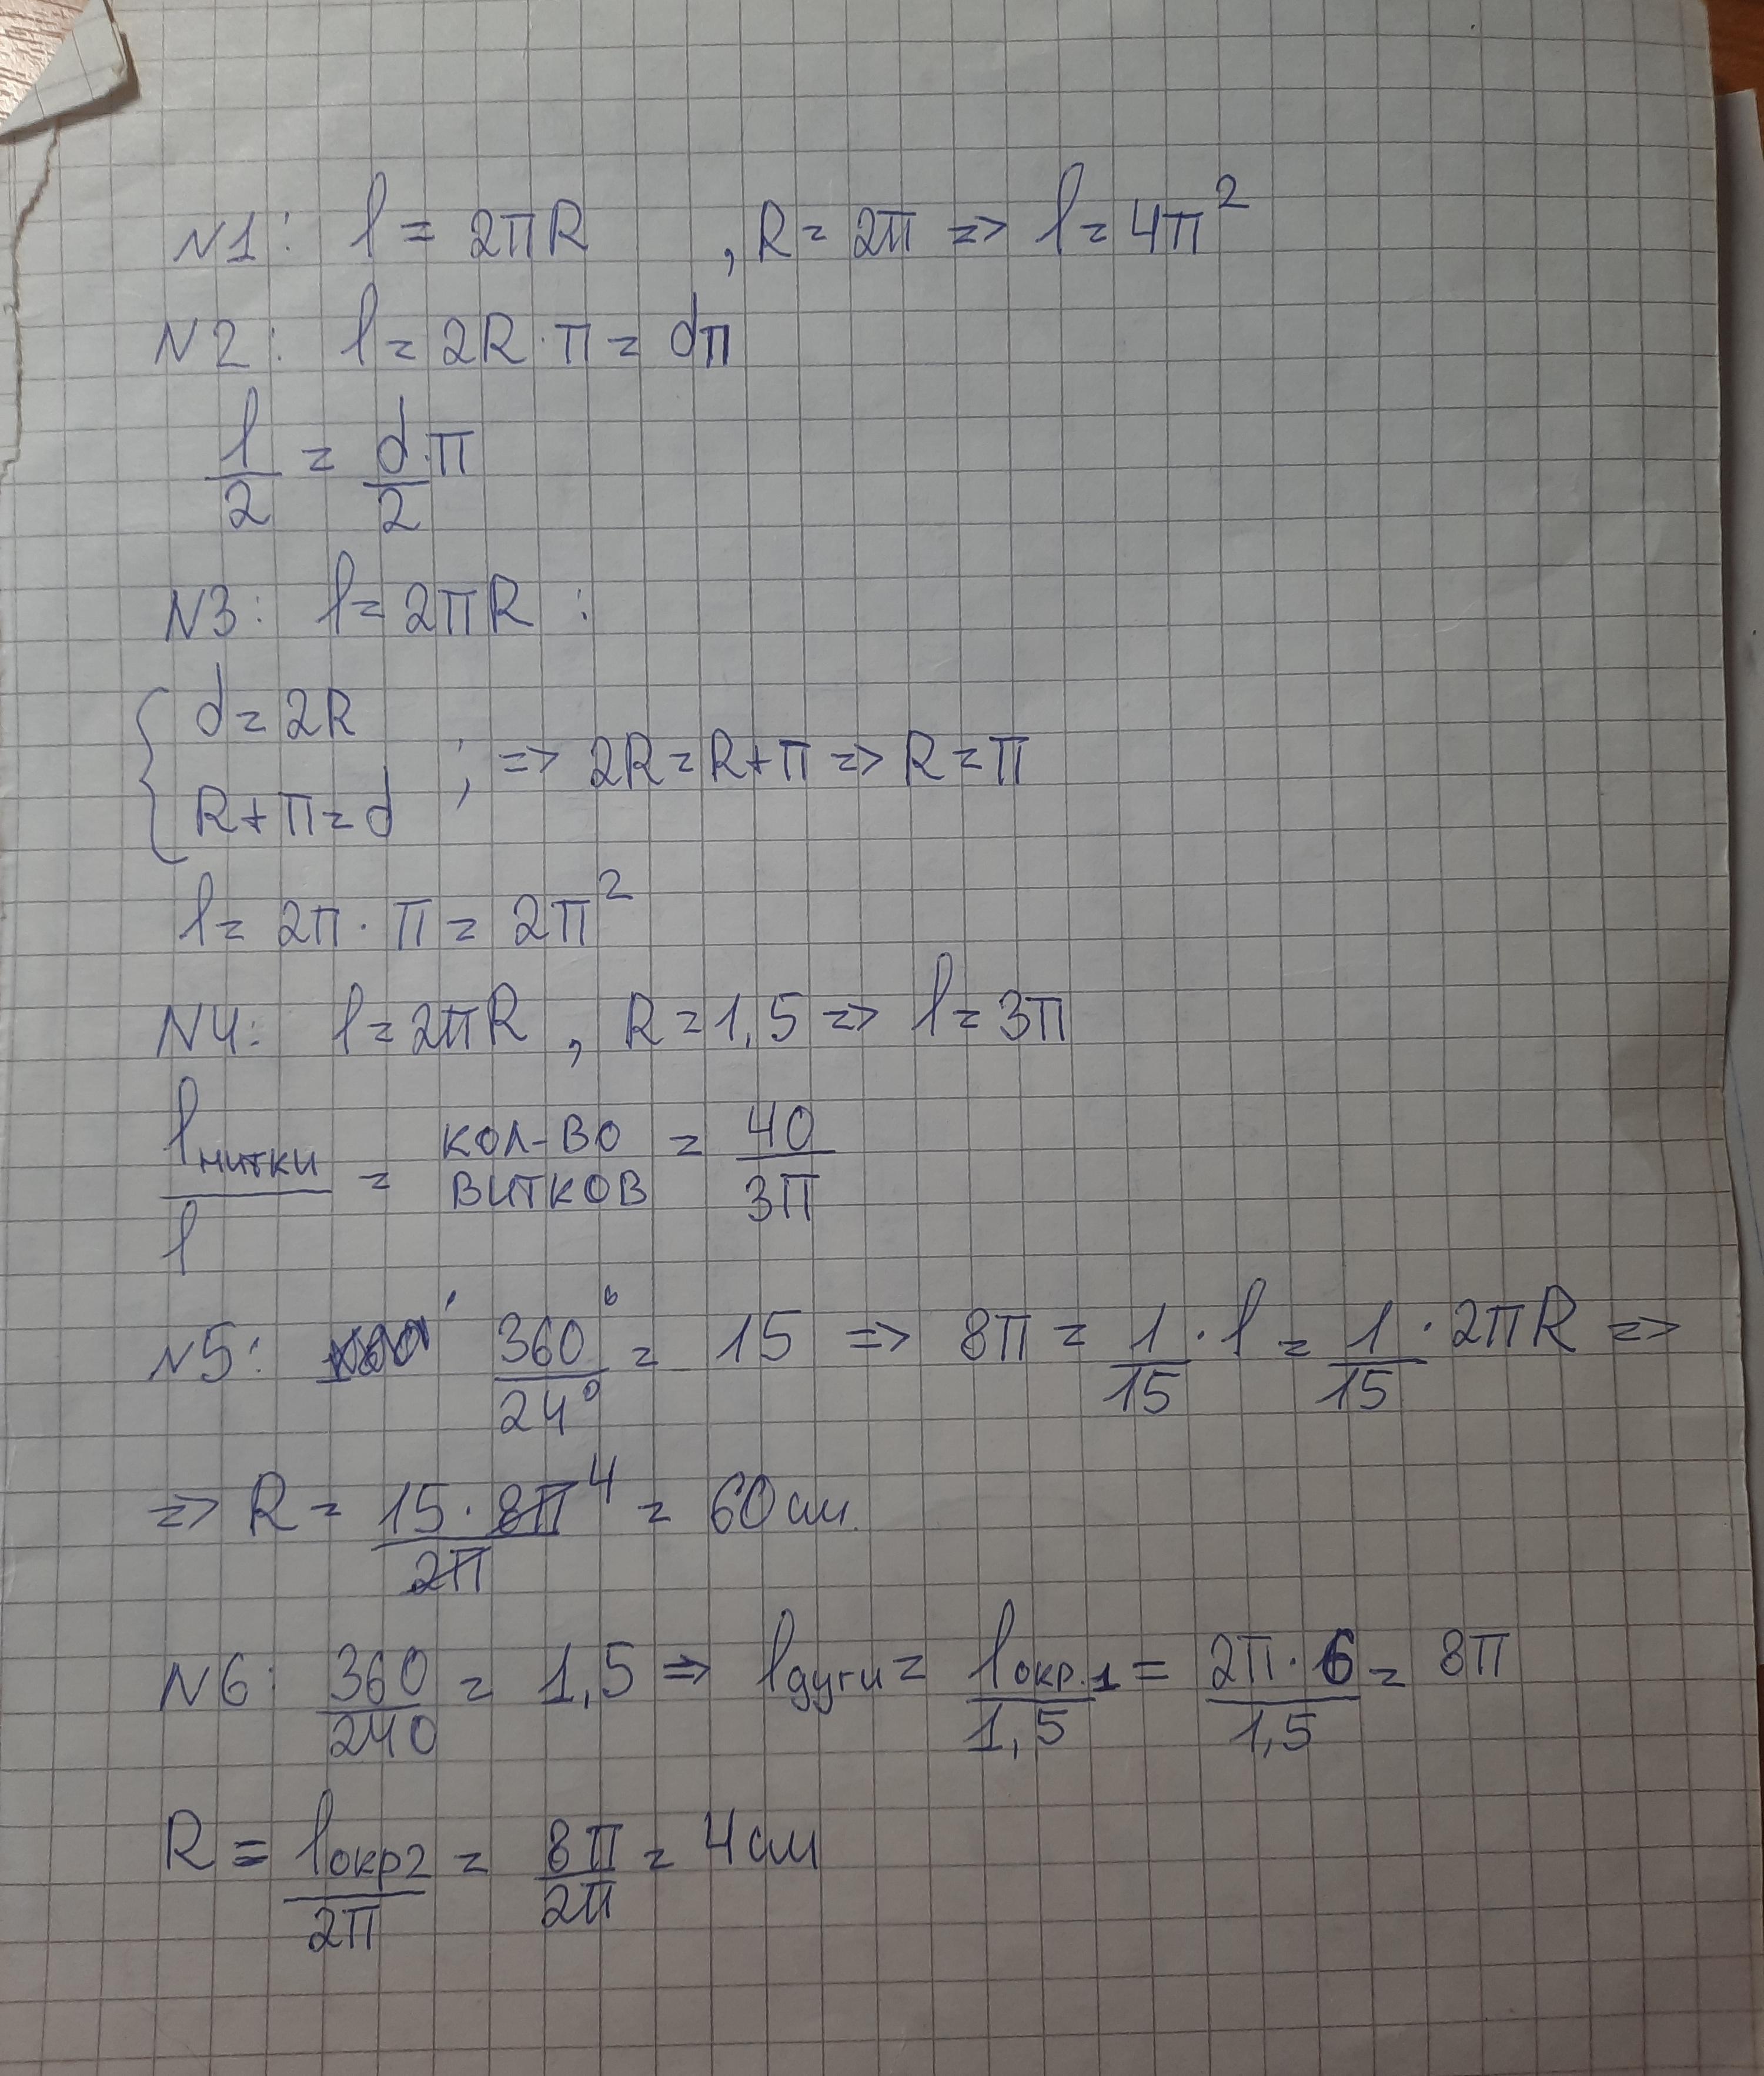 N1: l = 2πR , R = 2π => l = 4π²
N2: l = 2R · π = dπ
l/2 = d/2 · π
N3: l = 2πR :
{ d = 2R
R + π = d ; => 2R = R + π => R = π
l = 2π · π = 2π²
N4: l = 2πR , R = 1,5 => l = 3π
lнитки/l = кол-во витков = 40/3π
N5: 360°/24° = 15 => 8π = 1/15 · l = 1/15 · 2πR =>
=> R = 15 · 8π/2π 4 = 60 см.
N6: 360/240 = 1,5 => lдуги = lокр.1/1,5 = 2π · 6/1,5 = 8π
R = lокр2/2π = 8π/2π = 4 см